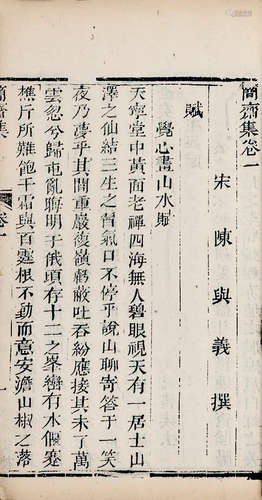 簡齋集卷一
宋陳與義撰
賦
覺心畫山水賦
天寧堂中黃面老禪四海無人碧眼視天有一居士山
澤之仙結三生之習氣口不停乎說山聊寄答于一笑
夜乃夢乎其間重巖複嶺蔽虧吞吐紛應接其未了萬
雲忽兮歸屯亂晦明于俄頃存十二之峯巒有木偃蹇
樵斤所難飽千霜與百霆根不動而意安澹山椒之落
簡齋集
卷一
一